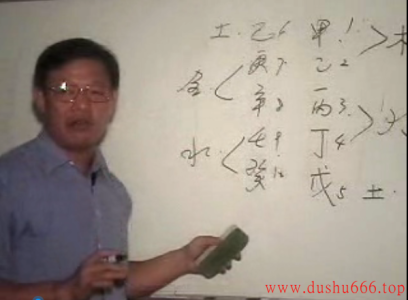 土 · 己6 甲1 > 木
金 < 庚7 乙2
辛8 丙3 > 火
水 < 壬9 丁4
癸10 戊5 土
www.dushu666.top